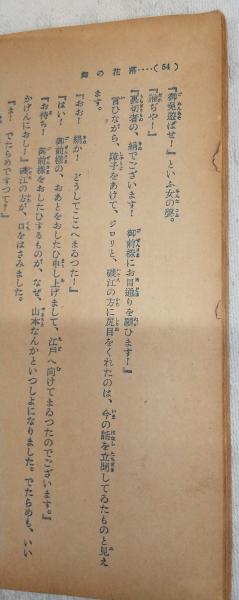 (54)‥‥落花の舞
『御免遊ばせ！』といふ女の聲。
『誰ぢや！』
『裏切者の、絹でございます！　御前樣にお目通りを願ひます！』
言ひながら、障子をあけて、ジロリと、磯江の方に尻目をくれたのは、今の話を立聞してゐたものと見え
ます。
『おお！　絹か！　どうしてここへまゐつた！』
『はい！　御前樣の、おあとをおしたひ申し上げまして、江戸へ向けてまゐつたのでございます。』
『お待ち！　御前樣をおしたひするものが、なぜ、山本なんかといつしよになりました。でたらめも、いい
かげんにおし！』磯江の方が、口をはさみました。
『ま！　でたらめですつて！』